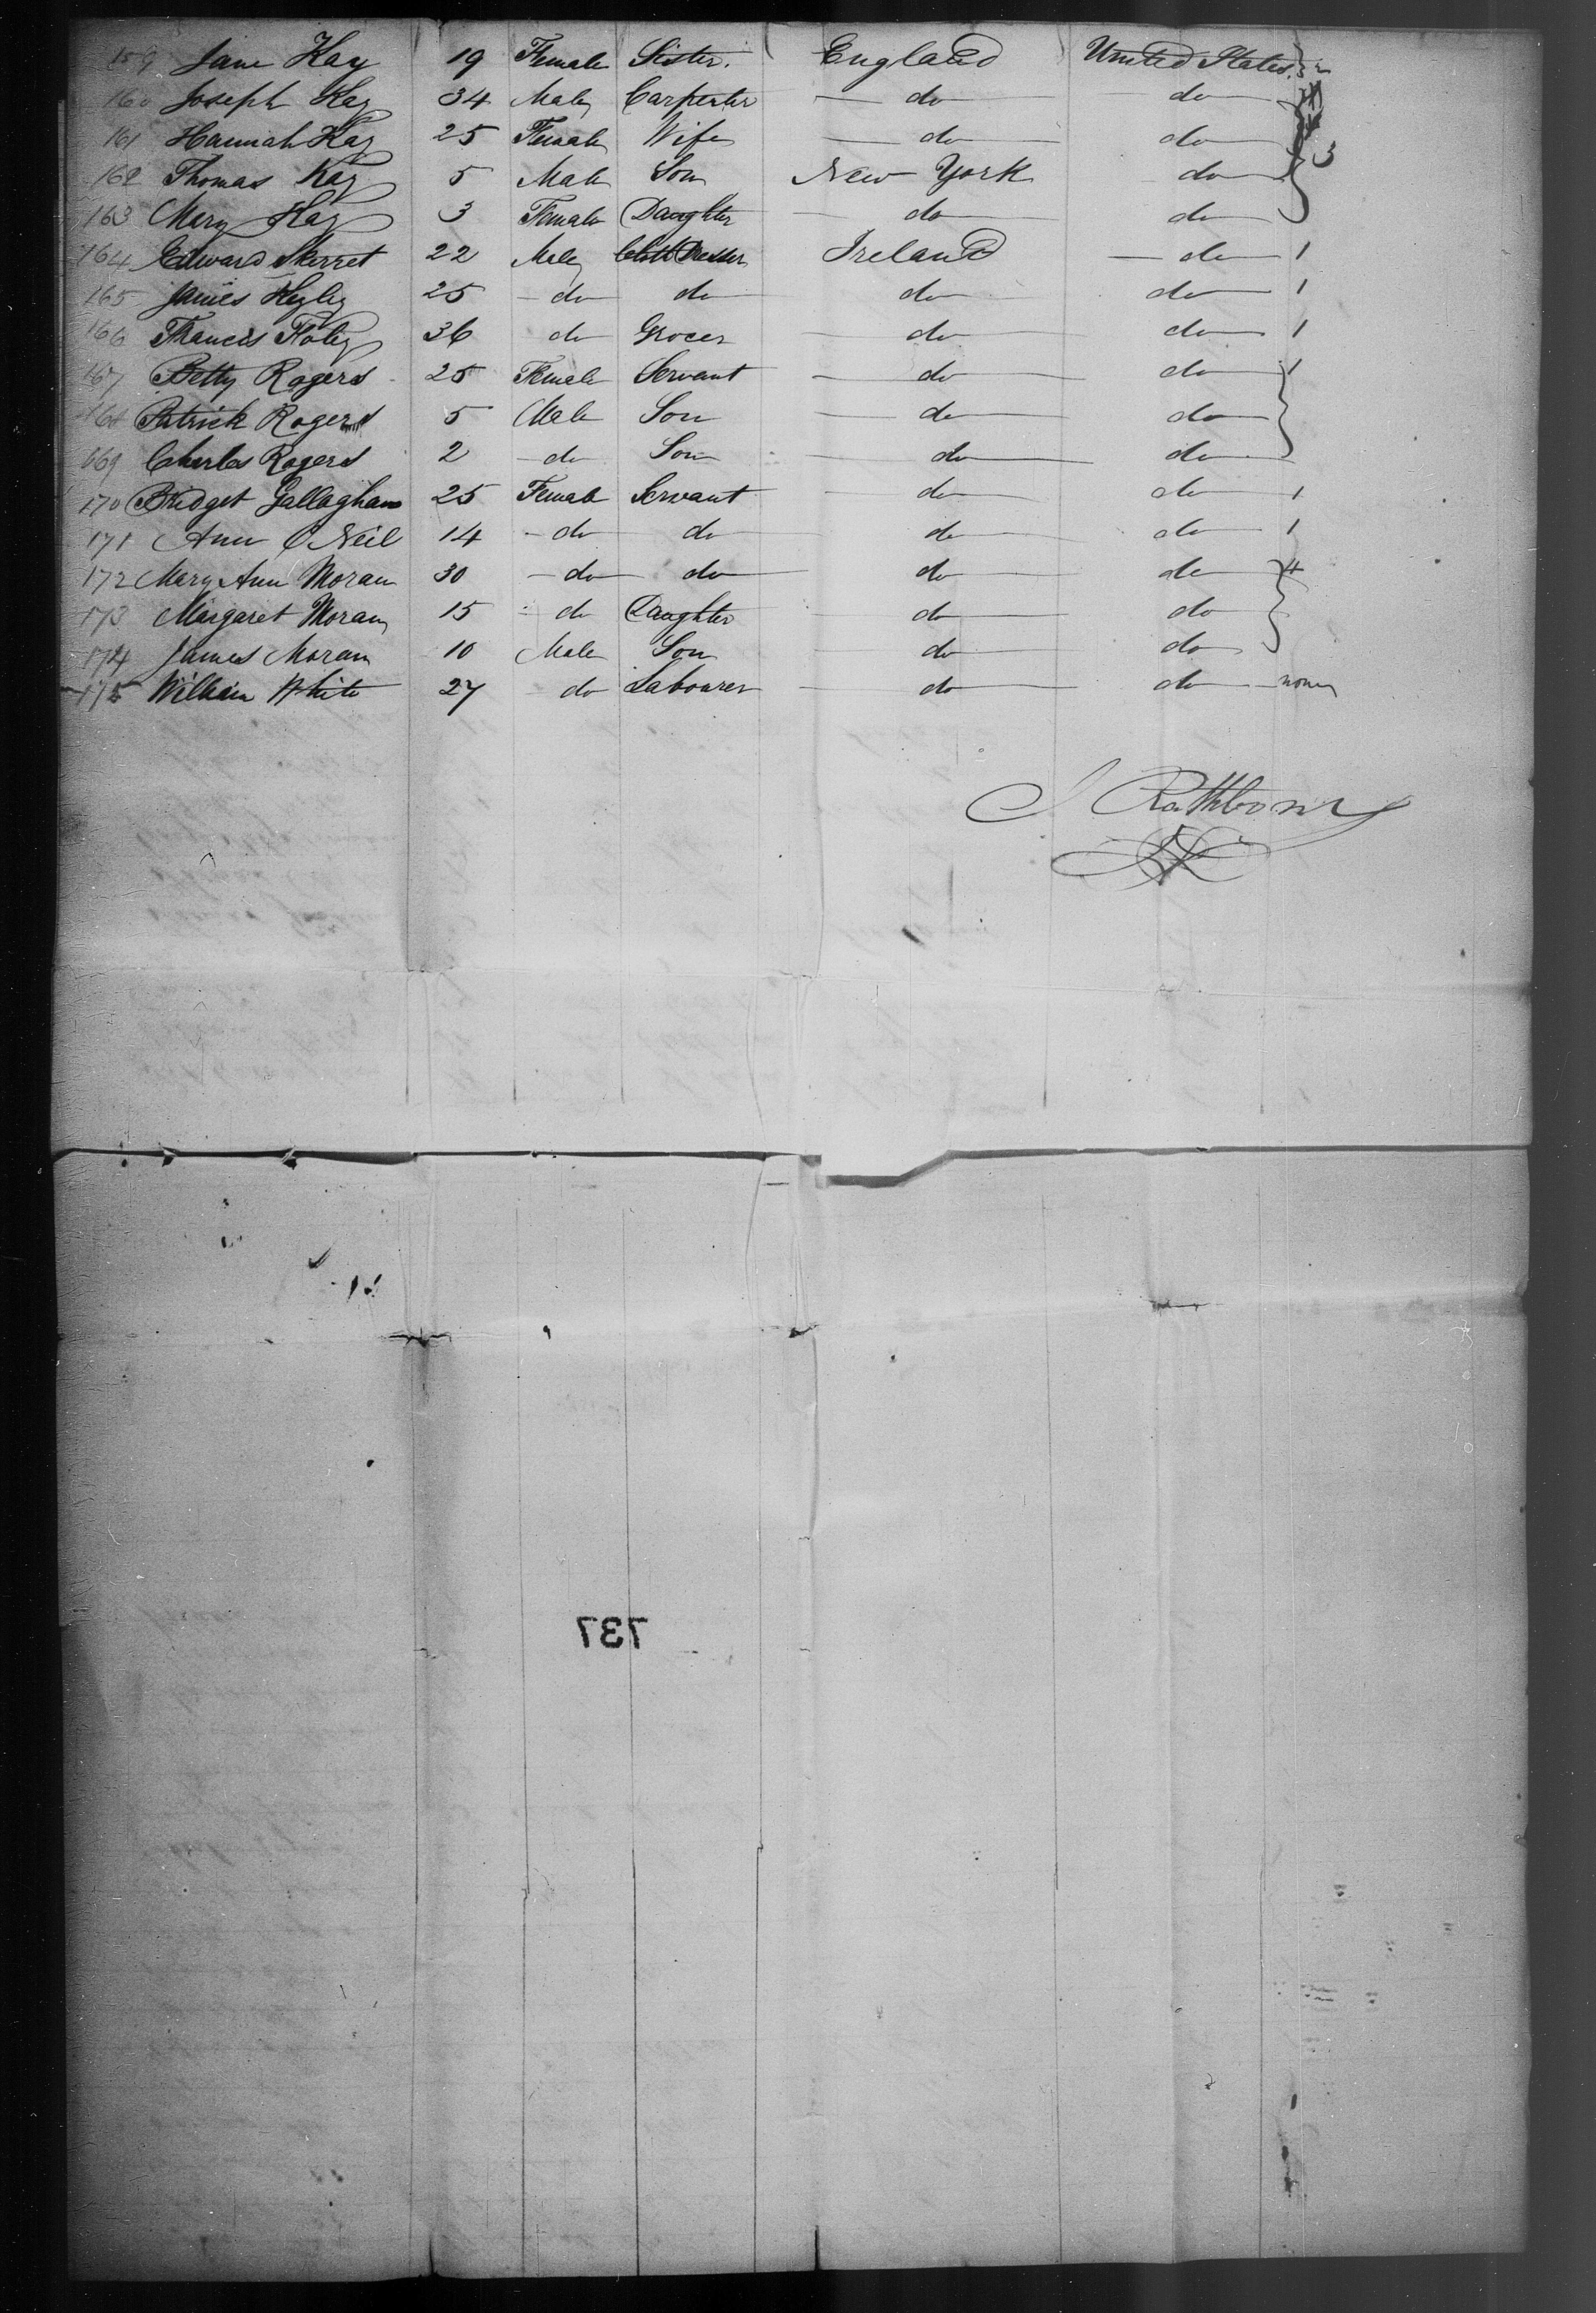 159 Jane Kay 19 Female Sister. England United States
160 Joseph Kay 34 Male Carpenter do do
161 Hannah Kay 25 Female Wife do do 3
162 Thomas Kay 5 Male Son New York do
163 Mary Kay 3 Female Daughter do do
164 Edward Skerret 22 Male Cloth Dresser Ireland do 1
165 James 25 do do do do 1
166 Francis Foley 36 do Grocer do do 1
167 Betty Rogers 25 Female Servant do do 1
168 Patrick Rogers 5 Male Son do do
169 Charles Rogers 2 do Son do do
170 Bridget Gallaghan 25 Female Servant do do 1
171 Ann O Neil 14 do do do do 1
172 Mary Ann Moran 30 do do do do 4
173 Margaret Moran 15 do Daughter do do
174 James Moran 10 Male Son do do
175 William White 27 do Labourer do do none
J Rathbone
737